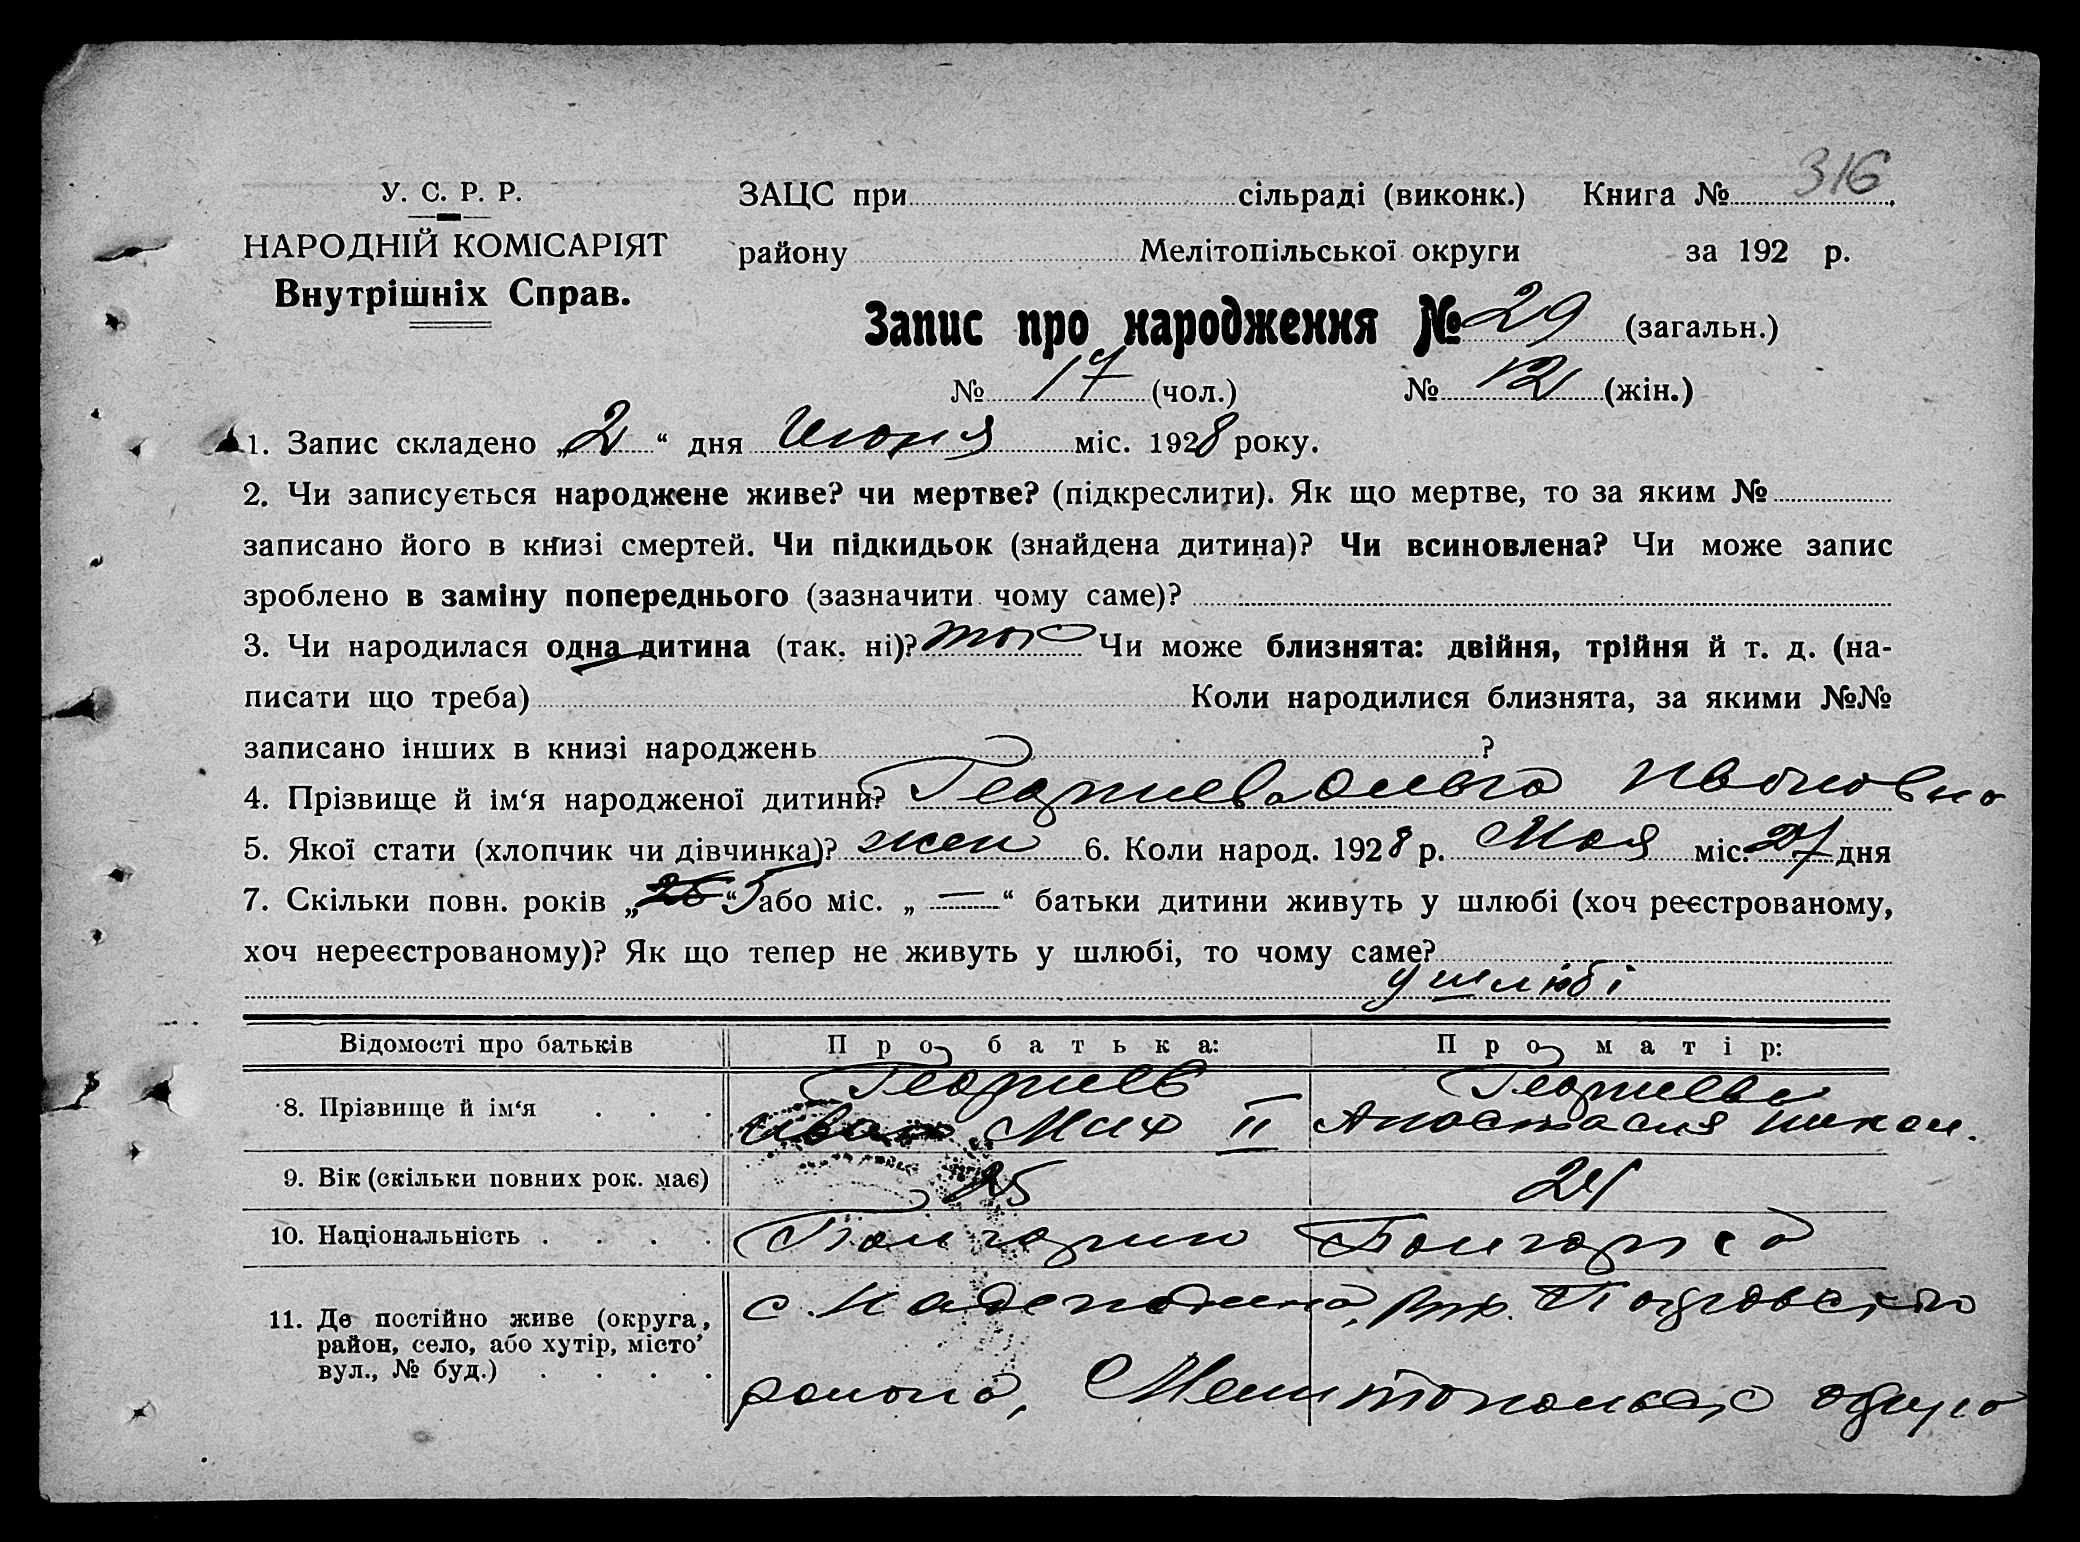 316
У. С. Р. Р.
НАРОДНІЙ КОМІСАРІЯТ
Внутрішніх Справ.
ЗАЦС при сільраді (виконк.) Книга №
району Мелітопільської округи за 192 р.
Запис про народження № 29 (загальн.)
№ 17 (чол.) № 12 (жін.)
1. Запис складено „2“ дня Июня міс. 1928 року.
2. Чи записується народжене живе? чи мертве? (підкреслити). Як що мертве, то за яким №
записано його в книзі смертей. Чи підкидьок (знайдена дитина)? Чи всиновлена? Чи може запис
зроблено в заміну попереднього (зазначити чому саме)?
3. Чи народилася одна дитина (так, ні)? так Чи може близнята: двійня, трійня й т. д. (на-
писати що треба) Коли народилися близнята, за якими №№
записано інших в книзі народжень ?
4. Прізвище й ім‘я народженої дитини? Георгиева Ольга Ивановна
5. Якої стати (хлопчик чи дівчинка)? жен 6. Коли народ. 1928 р. Мая міс. 27 дня
7. Скільки повн. років „25“ 5 або міс. „ — “ батьки дитини живуть у шлюбі (хоч реєстрованому,
хоч нереєстрованому)? Як що тепер не живуть у шлюбі, то чому саме?
у шлюбі
Відомості про батьків Про батька: Про матір:
8. Прізвище й ім‘я . . . Георгиев Иван Мих II Георгиева Анастасия Никол.
9. Вік (скільки повних рок. має) 25 24
10. Національність . . . . Болгарин Болгарка
11. Де постійно живе (округа,
район, село, або хутір, місто
вул., № буд.) . . . .
с. Надеждина, Покровского
района, Мелитопольск округа